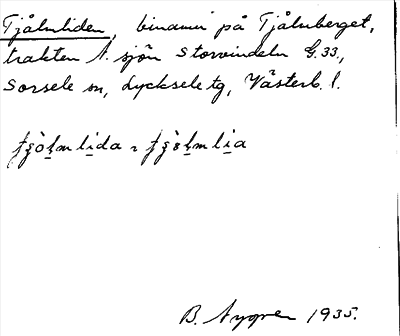 Tjålmliden, binamn på Tjålmberget,
trakten N. sjön Storvindeln G.33.,
Sorsele sn, Lycksele tg, Västerb. l.
B. Nygren 1935.